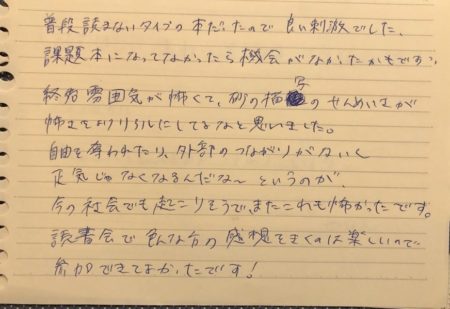 普段読まないタイプの本だったので良い刺激でした。
課題本になってなかったら機会がなかったかもです。
終始雰囲気が怖くて、砂の描写のせんめいさが
怖さをよけいリアルにしてるなと思いました。
自由を奪われたり、外部のつながりがないと
正気じゃなくなるんだな〜というのが、
今の社会でも起こりそうで、またこれも怖かったです。
読書会で色んな方の感想をきくのは楽しいので
参加できてよかったです!